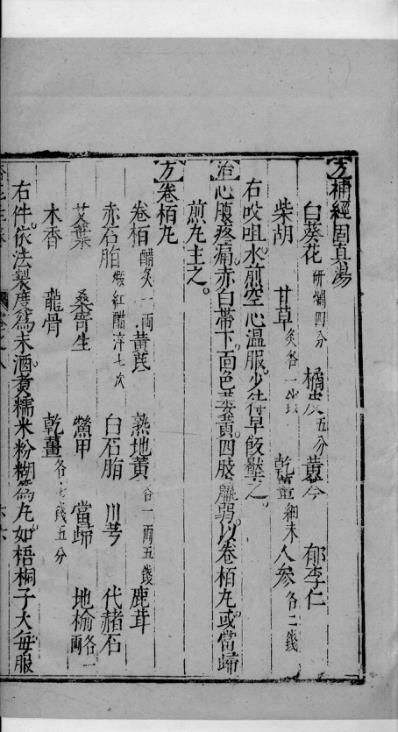 方補經固真湯
白葵花研爛四分 橘皮五分 黃芩 郁李仁
柴胡 甘草炙各一 乾薑細末 人參各二錢
右㕮咀水煎空心溫服少待早飯壓之
治心腹疼痛赤白帶下面色萎黃四肢羸弱以卷栢丸或當歸
煎丸主之。
方卷栢丸
卷栢醋炙一兩 黃芪 熟地黃各一兩五錢 鹿茸
赤石脂煅紅醋淬七次 白石脂 川芎 代赭石
艾葉 桑寄生 鱉甲 當歸 地榆各一兩
木香 龍骨 乾薑各 錢五分
右件依法製度爲末酒煮糯米粉糊爲丸如梧桐子大每服